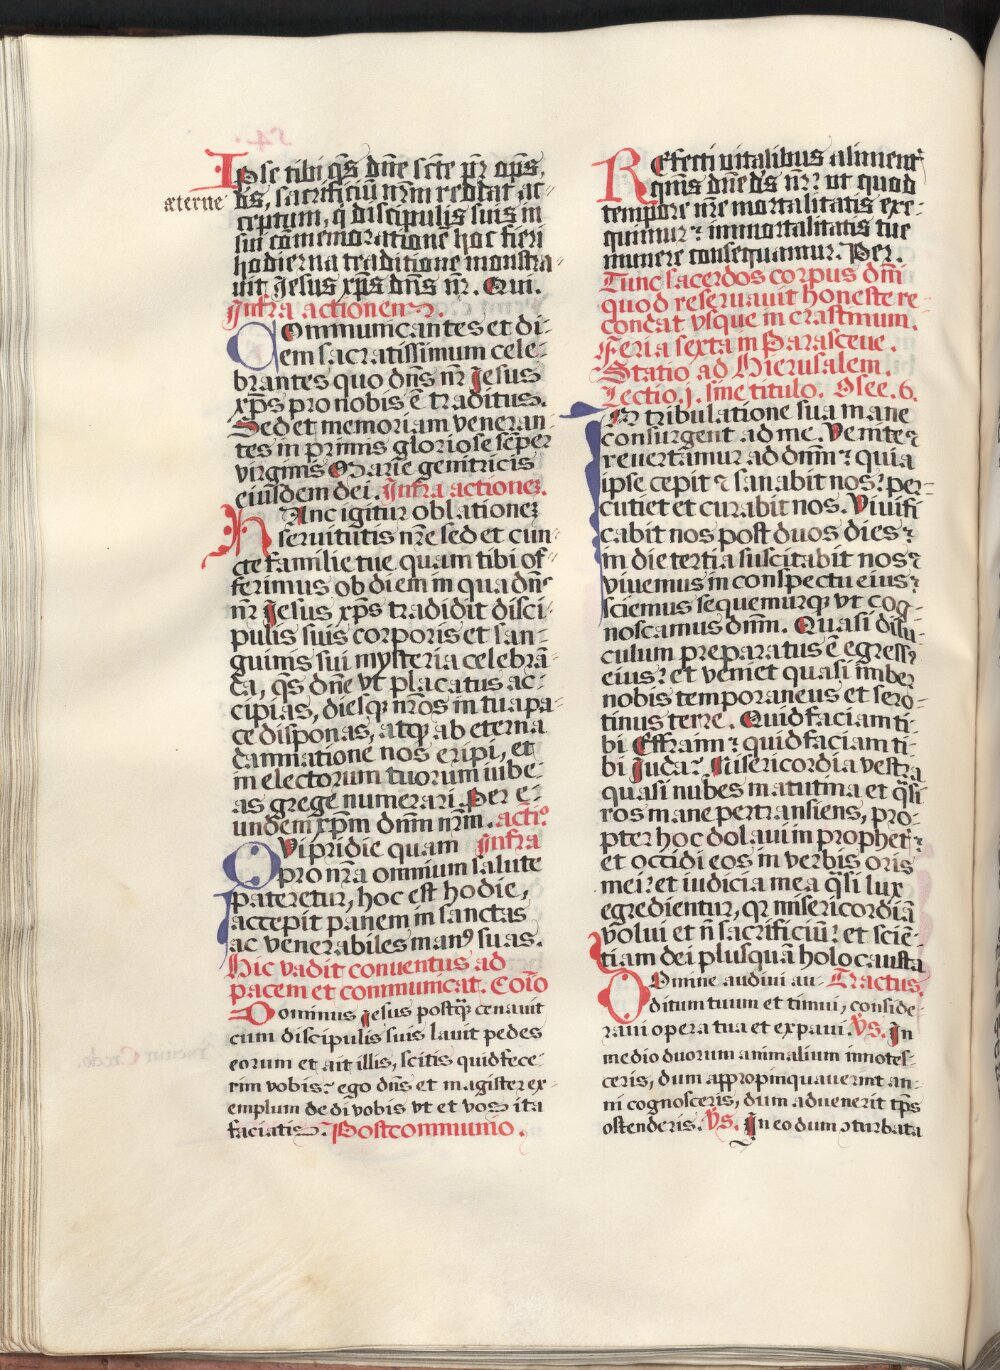 Ipse tibi q̄s dn̄e sct̄e pr̄ op̄s,
æterne
ds̄, sacrificiū nr̄m reddat ac-
ceptum, q̄ discipulis suis in
sui cōmemoratione hoc fieri
hodierna traditione monstra-
uit Jesus xp̄s dn̄s nr̄. Qui.
Infra actionem.
Communicantes et di-
em sacratissimum cele-
brantes quo dn̄s nr̄ Jesus
xp̄s pro nobis ē traditus.
Sed et memoriam veneran-
tes in primis gloriose sēper
virginis Marie genitricis
eiusdem dei. Infra actionē.
Hanc igitur oblationē
seruitutis nr̄e sed et cun-
cte familie tue quam tibi of-
ferimus ob diem in qua dn̄s
nr̄ Jesus xp̄s tradidit disci-
pulis suis corporis et san-
guinis sui mysteria celebrā-
da, q̄s dn̄e vt placatus ac-
cipias, diesqꝫ nr̄os in tua pa-
ce disponas, atqꝫ ab eterna
damnatione nos eripi, et
in electorum tuorum iube-
as grege numerari. Per e-
undem xp̄m dn̄m nr̄m. acti͞o
Qvi pridie quam Infra
pro nr̄a omnium salute
pateretur, hoc est hodie,
accepit panem in sanctas
ac venerabiles manꝰ suas.
Hic vadit conuentus ad
pacem et communicat. Cōio
Dominus Jesus postqꝫ cenauit
cum discipulis suis lauit pedes
eorum et ait illis, scitis quid fece-
rim vobis? ego dn̄s et magister ex-
emplum dedi vobis vt et vos ita
faciatis. Postcommunio.
Refecti uitalibus aliment̄
qm̄s dn̄e ds̄ nr̄: ut quod
tempore nr̄e mortalitatis exe-
quimur: immortalitatis tue
munere consequamur. Per.
Tunc sacerdos corpus dn̄i
quod reseruauit honeste re-
condat vsque in crastinum.
Feria sexta in Parasceue.
Statio ad Hierusalem.
Lectio .j. sine titulo. Osee. 6.
In tribulatione sua mane
consurgent ad me. Venite ⁊
reuertamur ad dn̄m: quia
ipse cepit ⁊ sanabit nos: per-
cutiet et curabit nos. Viuifi
cabit nos post duos dies:
in die tertia suscitabit nos ⁊
viuemus in conspectu eius:
sciemus sequemurqꝫ vt cog-
noscamus dn̄m. Quasi dilu-
culum preparatus ē egressꝰ
eius: et veniet quasi imber
nobis temporaneus et sero-
tinus terre. Quid faciam ti-
bi Effraim: quid faciam ti-
bi Juda? Misericordia vestra
quasi nubes matutina et q̄si
ros mane pertransiens, pro-
pter hoc dolaui in prophet̄:
et occidi eos in verbis oris
mei: et iudicia mea q̄si lux
egredientur, qꝛ misericordiā
volui et n̄ sacrificiū: et sciē-
tiam dei plusquā holocausta
Domine audiui au- Tractus.
ditum tuum et timui, conside-
raui opera tua et expaui. V̄s. In
medio duorum animalium innotes-
ceris, dum appropinquauerint an-
ni cognosceris, dum aduenerit tp̄s
ostenderis. V̄s. In eo dum ↄturbata